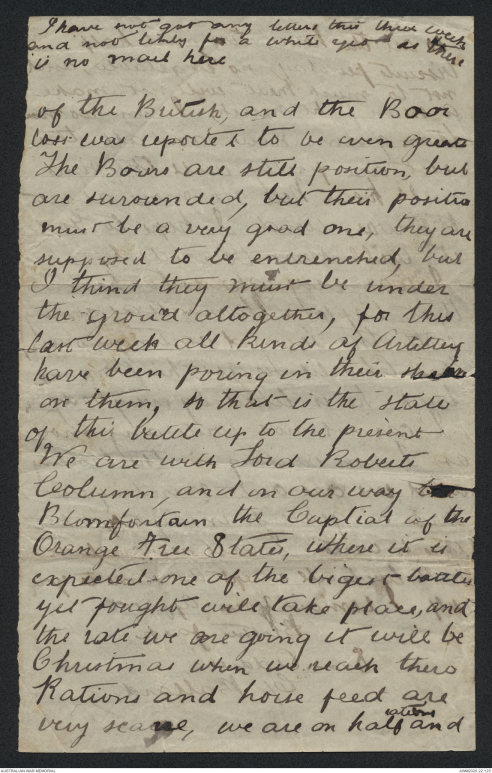 I have not got any letters this three weeks
and not likely for a while yet as there
is no mail here
of the British, and the Boor
loss was reported to be even greater
The Boers are still position, but
are surounded, but their position
must be a very good one, they are
supposed to be entrenched, but
I think they must be under
the ground altogether, for this
last week all kinds of Artillery
have been poring in their
on them, so that is the state
of this battle up to the present
We are with Lord Roberts
Column, and on our way
Blomfontain the Captial of the
Orange Free States, where it is
expected one of the bigest battles
yet fought will take place, and
the rate we are going it will be
Christmas when we reach there
Rations and horse feed are
very scarse, we are on half rations and
AUSTRALIAN WAR MEMORIAL